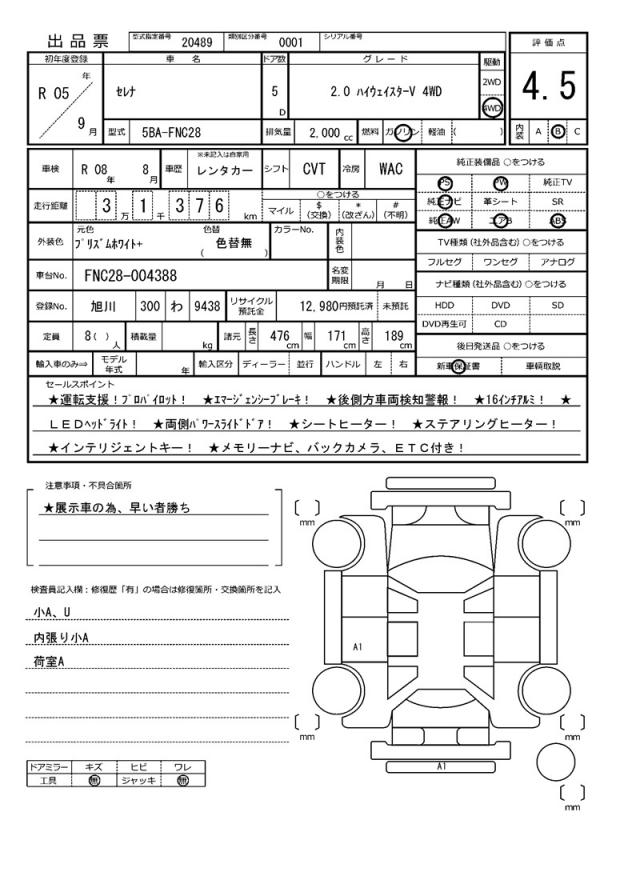 出品票 型式指定番号 20489 類別区分番号 0001 シリアル番号
初年度登録 車名 ドア数 グレード 駆動 評価点
R 05 年 9 月 セレナ 5 D 2.0 ハイウェイスターV 4WD 2WD 4WD 4.5
型式 5BA-FNC28 排気量 2,000 cc 燃料 ガソリン 軽油 ( ) 内装 A B C
車検 R 08 年 8 月 車歴 ※未記入は自家用 レンタカー シフト CVT 冷房 WAC 純正装備品 ○をつける
PS PW 純正TV
走行距離 3 万 1 千 3 7 6 km ○をつける 純正ナビ 革シート SR
マイル $ (交換) * (改ざん) # (不明) 純正AW エアB ABS
外装色 元色 プリズムホワイト+ 色替 ( 色替無 ) カラーNo. 内装色 TV種類 (社外品含む) ○をつける
フルセグ ワンセグ アナログ
車台No. FNC28-004388 名変期限 月 日 ナビ種類 (社外品含む) ○をつける
登録No. 旭川 300 わ 9438 リサイクル預託金 12,980円預託済 未預託 HDD DVD SD
DVD再生可 CD
定員 8( ) 人 積載量 kg 諸元 長さ 476 cm 幅 171 cm 高さ 189 cm 後日発送品 ○をつける
輸入車のみ⇒ モデル年式 年 輸入区分 ディーラー 並行 ハンドル 左 右 新車保証書 車輌取説
セールスポイント
★運転支援！プロパイロット！ ★エマージェンシーブレーキ！ ★後側方車両検知警報！ ★16インチアルミ！ ★
ＬＥＤヘッドライト！ ★両側パワースライドドア！ ★シートヒーター！ ★ステアリングヒーター！
★インテリジェントキー！ ★メモリーナビ、バックカメラ、ＥＴＣ付き！
注意事項・不具合箇所
★展示車の為、早い者勝ち
mm mm
検査員記入欄：修復歴「有」の場合は修復箇所・交換箇所を記入
小A、U
内張り小A
荷室A
A1
mm mm
A1
ドアミラー キズ ヒビ ワレ
工具 無 ジャッキ 無
mm